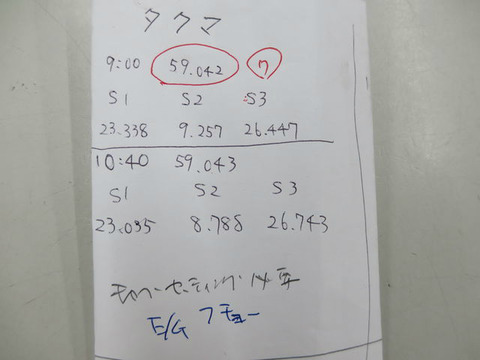 タクマ
9:00 59.042 7
S1 S2 S3
23.338 9.257 26.447
10:40 59.043
S1 S2 S3
23.035 8.788 26.743
セッティング
E/G フチュー